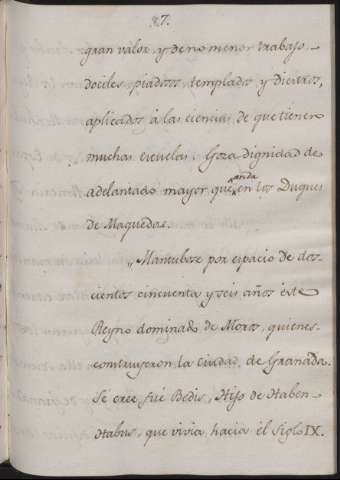 87.
gran valor y de no menor trabajo
dociles piadosos, templados, y Diestros,
aplicados à las ciencias de que tiene
muchas escuelas. Goza dignidad de
adelantado mayor que anda en los Duques
de Maquedas.
„Mantubose por espacio de dos-
cientos cincuenta y seis años este
Reyno dominado de Moros, quienes
construyeron la ciudad de Granada.
Se cree fué Bedis, Hijo de Haben
Habus, que vivia, hacia el siglo IX.